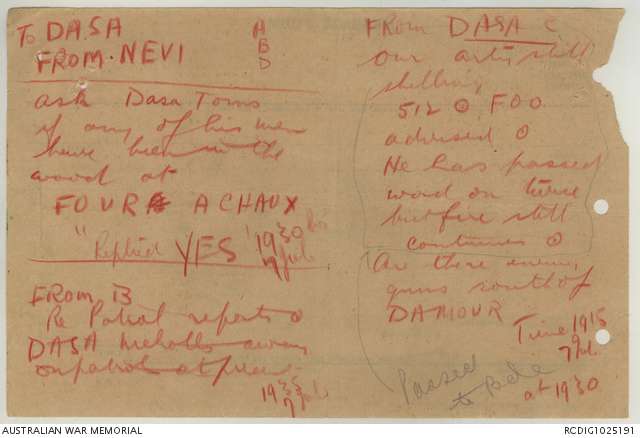 To DASA
FROM NEVI
A
B
D
ask Dasa Toms
if any of his men
have been in the
wood at
FOUR A CHAUX
"Replied YES" 1930 hrs
9 Jul
FROM B
Re Patrol reports O
DASA Nicholls away
on patrol at present
1935
9 Jul
FROM DASA C
our arty still
shelling
512 O FOO
advised O
He has passed
word on twice
but fire still
continues O
Are there enemy
guns south of
DAMOUR
Time 1915
9 Jul
Passed
to Bde
at 1930
AUSTRALIAN WAR MEMORIAL
RCDIG1025191